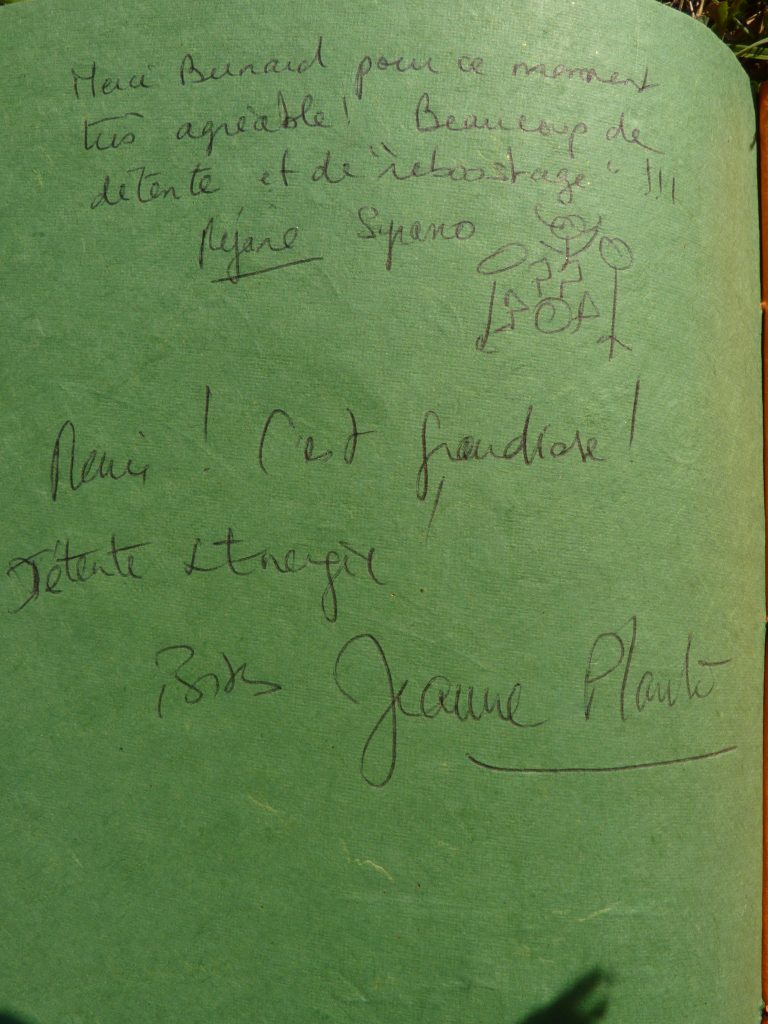 Merci Bernard pour ce moment
très agréable! Beaucoup de
détente et de "reboostage" !!!
Réjane
Merci ! C'est grandiose!
Détente & Energie !
Bises Jeanne Planté